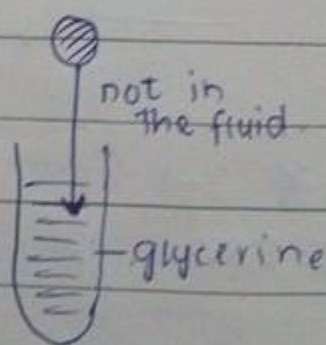 not in
the fluid
glycerine